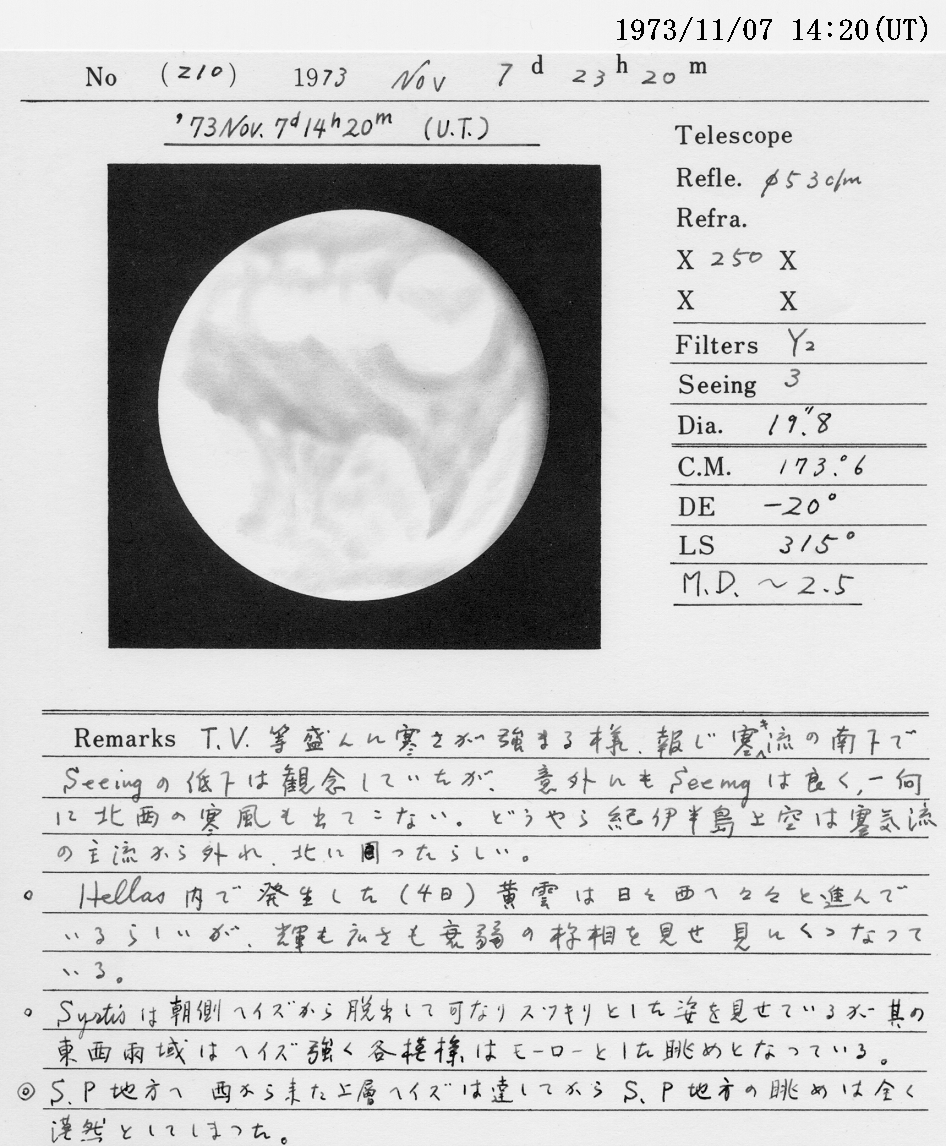 1973/11/07 14:20(UT)
No (210) 1973 Nov 7 d 23 h 20 m
'73 Nov. 7d 14h 20m (U.T.)
Telescope
Refle. φ53c/m
Refra.
X 250 X
X X
Filters Y2
Seeing 3
Dia. 19."8
C.M. 173.°6
DE -20°
LS 315°
M.D. ~2.5
Remarks T.V. 等盛んに寒さが強まる様、報じ寒流の南下で
Seeingの低下は観念していたが、意外にもSeeingは良く、一向
に北西の寒風も出てこない。どうやら紀伊半島上空は寒気流
の主流から外れ、北に回ったらしい。
○ Hellas内で発生した(4日)黄雲は日々西へ々々と進んで
いるらしいが、輝も広さも衰弱の様相を見せ見にくつなって
いる。
○ Syrtisは朝側ヘイズから脱出して可なりスッキリとした姿を見せているが其の
東西両域はヘイズ強く各模様はモーローとした眺めとなっている。
◎ S.P地方へ西から来た上層ヘイズは達してからS.P地方の眺めは全く
漠然としてしまった。